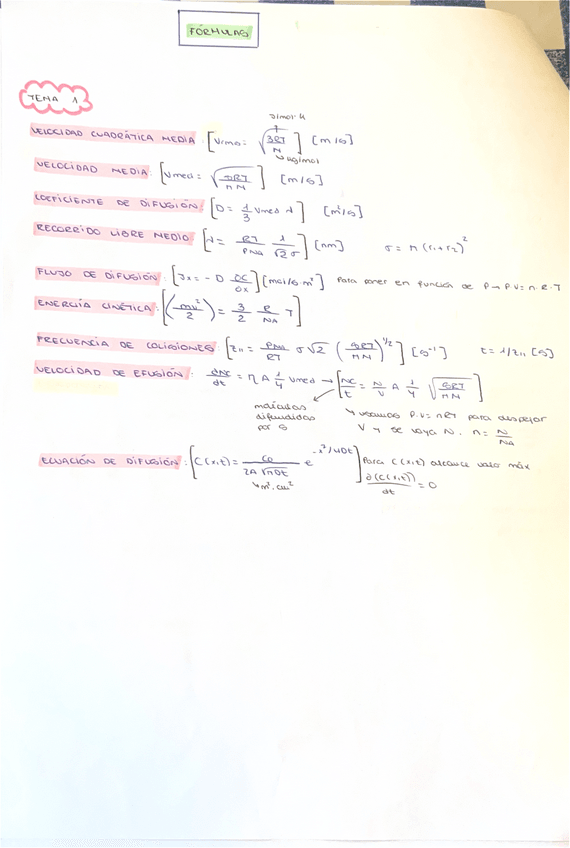 FÓRMULAS
TEMA 1
J/mol·K
VELOCIDAD CUADRÁTICA MEDIA: [Vrms = √(3RT/M)] [m/s]
kg/mol
VELOCIDAD MEDIA: [Vmed = √(8RT/πM)] [m/s]
COEFICIENTE DE DIFUSIÓN: [D = 1/3 Vmed λ] [m²/s]
RECORRIDO LIBRE MEDIO: [λ = RT/PNA 1/√2 σ] [nm] σ = π(r₁+r₂)²
FLUJO DE DIFUSIÓN: [Jx = -D ∂C/∂x] [mol/s·m²] Para poner en función de P → P·V = n·R·T
ENERGÍA CINÉTICA: [(mv²/2) = 3/2 R/NA T]
FRECUENCIA DE COLISIONES: [z₁₁ = PNA/RT σ√2 (8RT/πM)^1/2] [s⁻¹] t = 1/z₁₁ [s]
VELOCIDAD DE EFUSIÓN: dNc/dt = η A 1/4 Vmed → [Nc/t = N/V A 1/4 √(8RT/πM)]
moléculas
difundidas
por s
↳ usamos P·V = nRT para despejar
V y se vaya N. n = N/NA
ECUACIÓN DE DIFUSIÓN: [C(x,t) = C₀/2A√πDt e^-x²/4Dt] Para C(x,t) alcance valor máx
↳ m². cm² ∂(C(x,t))/dt = 0